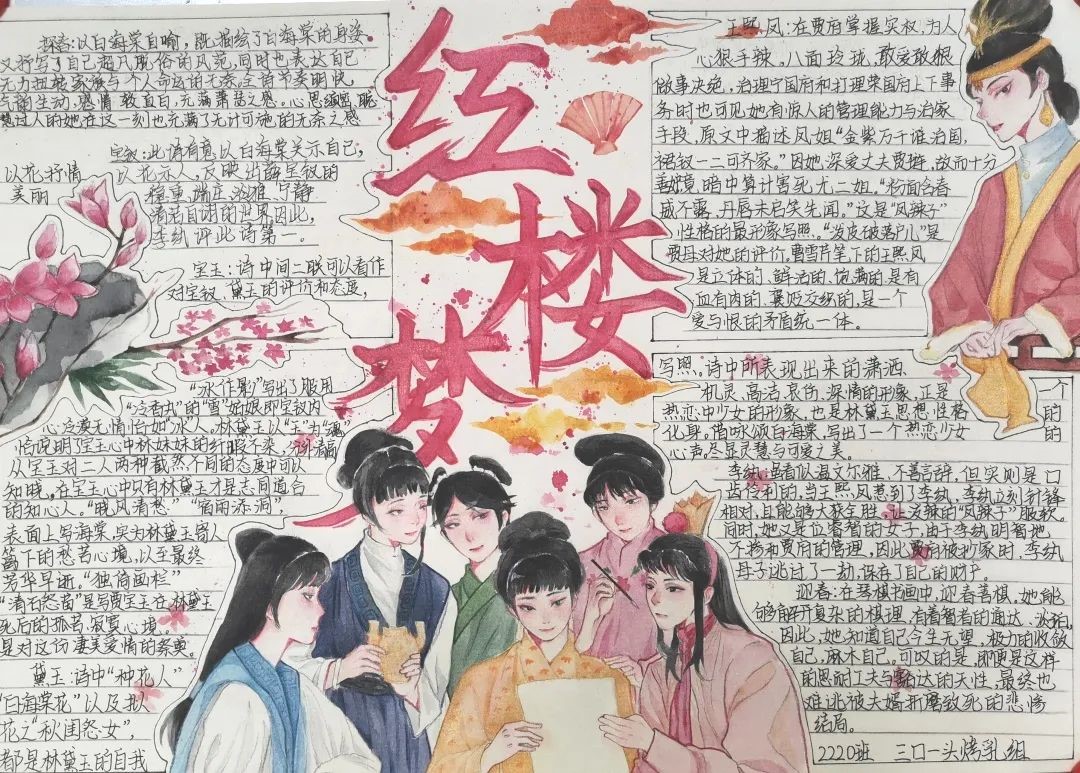 红楼梦
探春:以白海棠自喻,既描绘了白海棠的身姿
又抒写了自己超凡脱俗的风范,同时也表达自己
无力扭转家族和个人命运的无奈,全诗节奏明快
生动,感情较直白,充满萧瑟之感。心思缜密,聪
慧过人的她,在这一刻也充满了无计可施的无奈之感
宝钗:此诗有意以白海棠关示自己,
以花抒情 以花示人,反映出薛宝钗的
美丽 稳重,端庄,淡雅,宁静
清洁自诩的世界,因此,
李纨评此诗第一。
宝玉:诗中间二联可以看作
对宝钗、黛玉的评价和态度,
“冰作影”写出了服用
“冷香丸”的“雪”姑娘即宝钗内
心冷漠无情恰如“冰”人,林黛玉以“玉为魂”
恰说明了宝玉心中林妹妹的纤瑕不染,
从宝玉对二人两种截然不同的态度中可以
知晓,在宝玉心中只有林黛玉才是志同道合
的知心人。“晓风清愁”“宿雨添泪”,
表面上写海棠,实为林黛玉寄人
篱下的愁苦心境,以至最终
芳华早逝。“独倚画栏”
“清砧怨笛”是写贾宝玉在林黛玉
死后的孤君,寂寥心境。
是对这份凄美爱情的祭奠。
黛玉:诗中“种花人”
“白海棠花”以及拟
花之“秋闺怨女”
都是林黛玉的自我
王熙凤:在贾府掌握实权,为人
心狠手辣,八面玲珑,敢爱敢恨
做事决绝,治理宁国府和打理荣国府上下事
务时也可见她有惊人的管理能力与治家
手段,原文中描述凤姐“金紫万千谁治国,
裙钗一二可齐家。”因她深爱丈夫贾琏,故而十分
善妒,暗中算计害死尤二姐。“粉面含春
威不露,丹唇未启笑先闻。”这是“凤辣子”
性格的最形象写照。“泼皮破落户儿”是
贾母对她的评价,曹雪芹笔下的王熙凤
是立体的、鲜活的、饱满的,是有
血有肉的、褒贬交织的,是一个
爱与恨的矛盾统一体。
写照,诗中所表现出来的潇洒、 一个
机灵、高洁、哀伤、深情的形象,正是 的
热恋中少女的形象,也是林黛玉思想、性格 的
化身。借咏颂白海棠,写出了一个热恋少女
心声,尽显灵慧与可爱之美。
李纨:虽看似温文尔雅,不善言辞,但实则是口
齿伶俐的,当王熙凤惹到了李纨,李纨立刻针锋
相对,且能够大获全胜,让泼辣的“凤辣子”服软。
同时,她又是位睿智的女子,由于李纨明智地
不掺和贾府的管理,因此贾府被抄家时,李纨
母子逃过了一劫,保存了自己的财产。
迎春:在琴棋书画中,迎春善棋,她能
够解开复杂的棋理,有着智者的通达、淡泊,
因此,她知道自己今生无望,极力的收敛
自己,麻木自己。可叹的是,即便是这样
的忍耐工夫与豁达的天性,最终也
难逃被夫婿折磨致死的悲惨
结局。
2220班 三口一头烤乳组